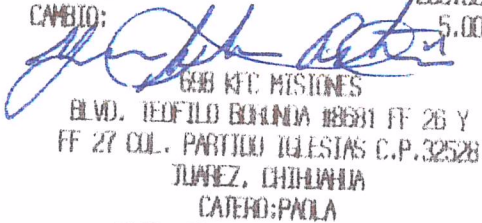 CAMBIO: 5.00
698 KFC MISIONES
BLVD. TEOFILO BORUNDA #8681 FF 26 Y
FF 27 COL. PARTIDO IGLESIAS C.P.32528
JUAREZ, CHIHUAHUA
CAJERO:PAOLA